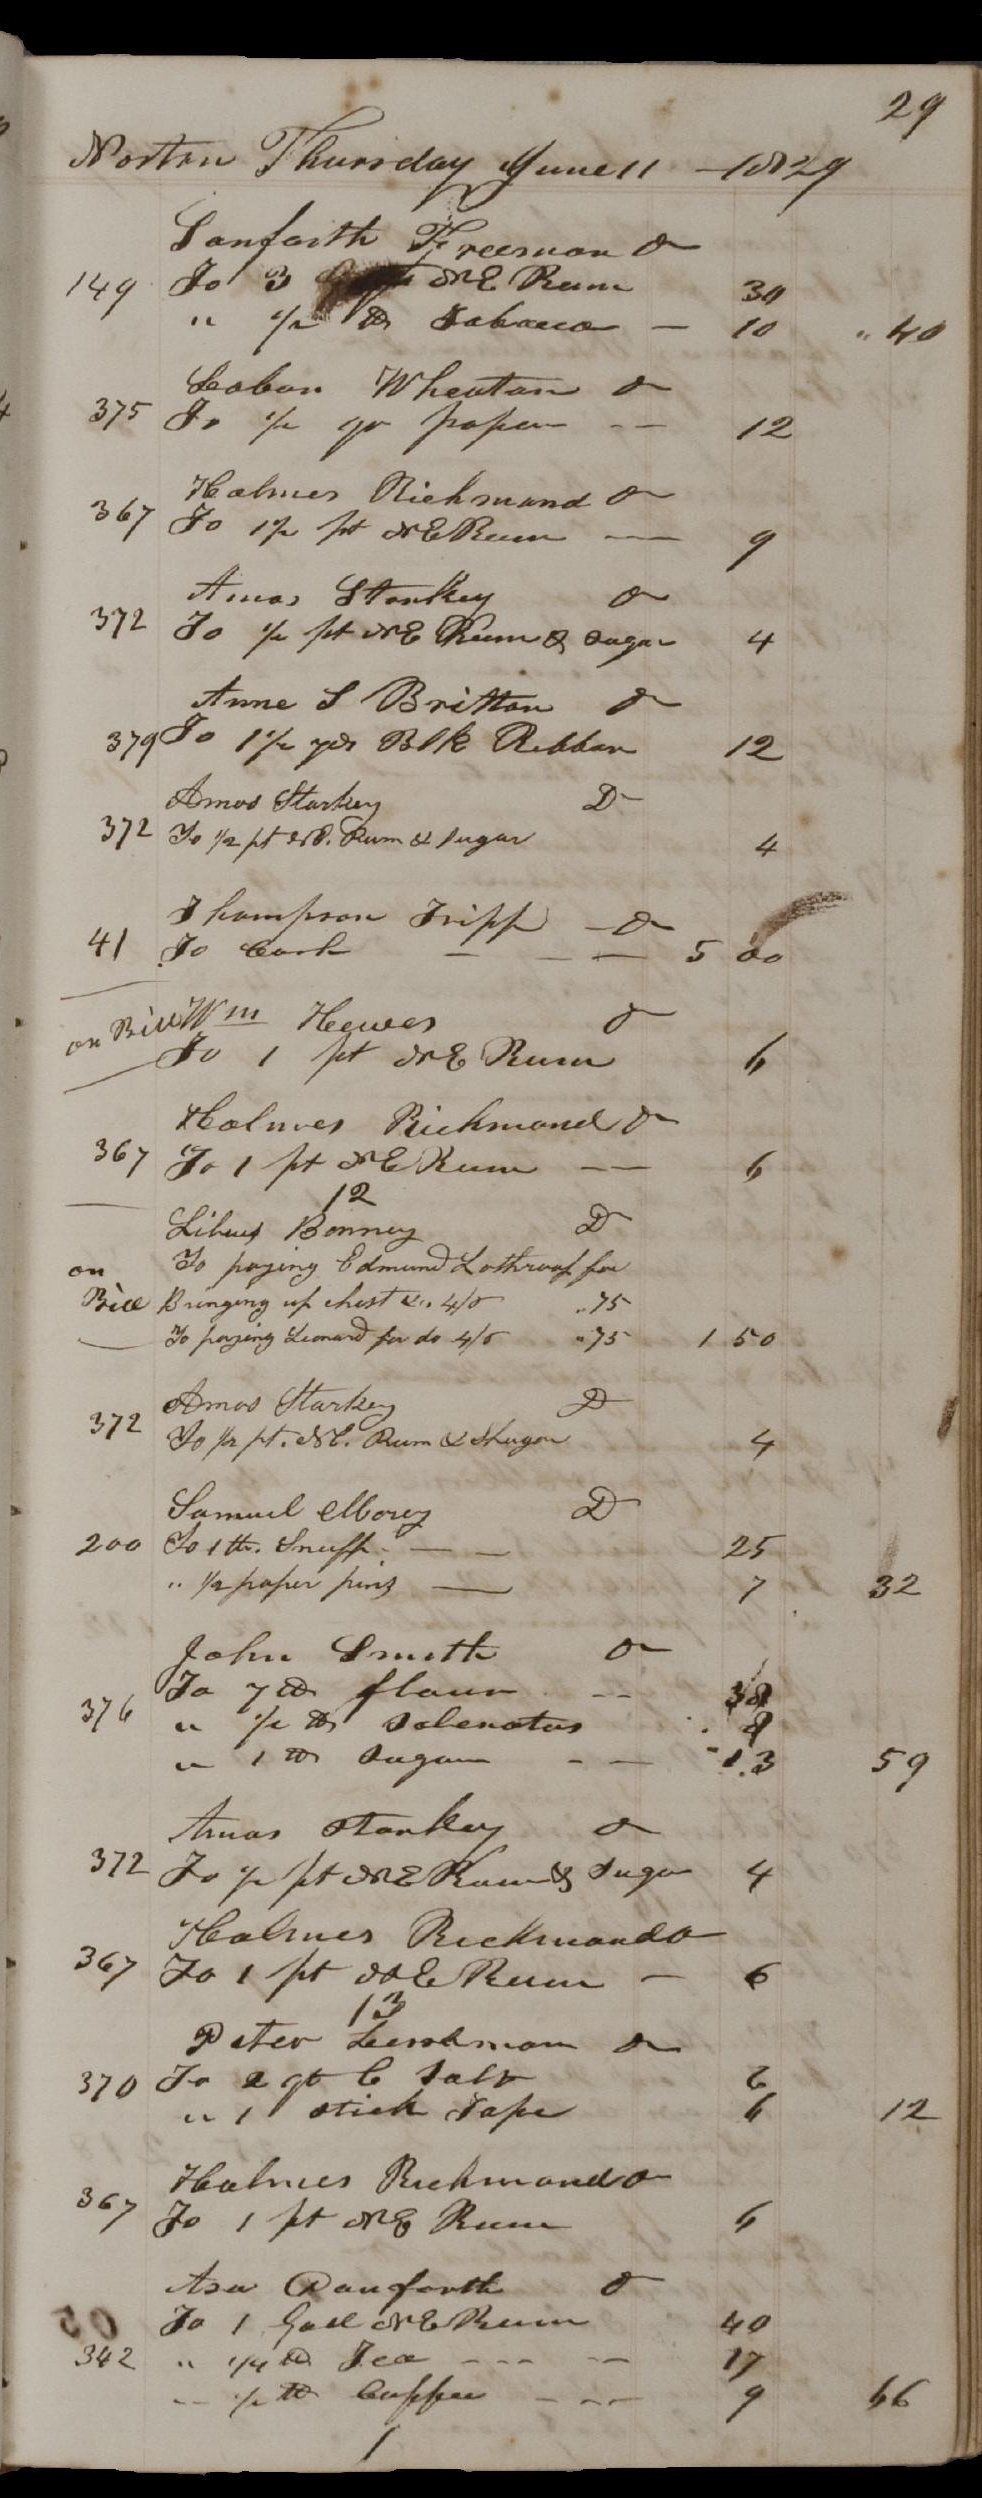 29
Norton Thursday June 11 - 1829
Danforth Freeman Dr
149 To 3 NE Rum 30
" 1/2 lb Tobacco — 10 " 40
Laban Wheaton Dr
375 To 1/2 qr paper -- 12
Holmes Richmond Dr
367 To 1 1/2 pt NE Rum — 9
Amos Starkey Dr
372 To 1/2 pt NE Rum & Sugar 4
Anne S Britton Dr
379 To 1 1/2 yds Blk Ribbon 12
Amos Starkey Dr
372 To 1/2 pt N.E. Rum & Sugar 4
Thompson Tripp — Dr
41 To Cash — — — 5 00
on Bill Wm Hewes Dr
To 1 pt NE Rum 6
Holmes Richmond Dr
367 To 1 pt NE Rum — 6
12
Libeus Bonney Dr
To paying Edmund Lothrop for
on Bill Bringing up chest &c. 4/6 ..75
To paying Leonard for do 4/6 "75 1 50
Amos Starkey Dr
372 To 1/2 pt. N.E. Rum & Shugar 4
Samuel Morey Dr
200 To 1 lb. Snuff. — — 25
" 1/2 paper pins — 7 32
John Smith Dr
To 7 lb flour -- 38
376 " 1/2 lb Saleratus 8
" 1 lb Sugar - — 13 59
Amos Starkey Dr
372 To 1/2 pt NE Rum & Sugar 4
Holmes Richmond Dr
367 To 1 pt NE Rum — 6
13
Peter Dr
370 To 2 qt C Salt 6
" 1 stick Tape 6 12
Holmes Richmond Dr
367 To 1 pt NE Rum 6
Asa Danforth Dr
To 1 Gall NE Rum 40
342 " 1/4 lb Tea --- -- 17
" 1/2 lb Coffee - -- 9 66
1